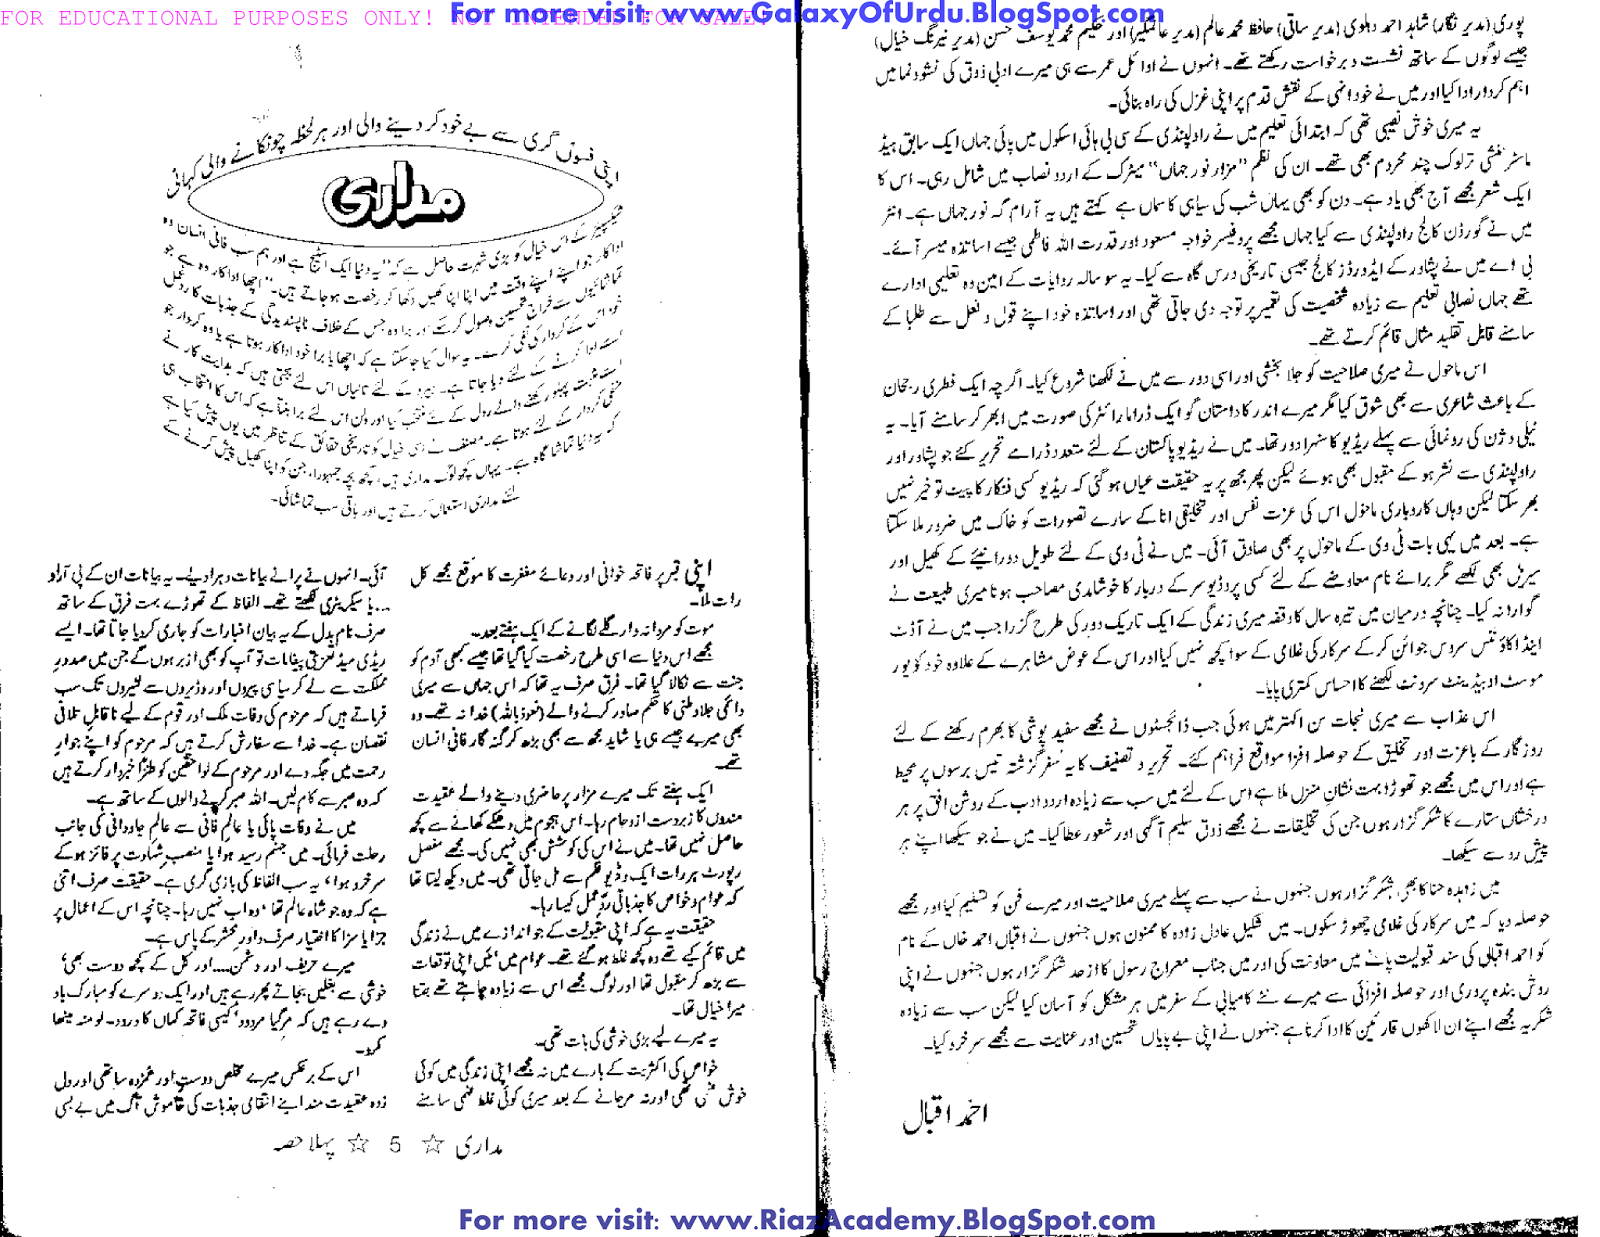 FOR EDUCATIONAL PURPOSES ONLY! NOT INTENDED FOR SALE!
For more visit: www.GalaxyOfUrdu.BlogSpot.com
پوری (مدیر نگار) شاہد احمد دہلوی (مدیر ساقی) حافظ محمد عالم (مدیر عالمگیر) اور حکیم محمد یوسف حسن (مدیر نیرنگ خیال)
جیسے لوگوں کے ساتھ نشست و برخواست رکھتے تھے۔ انہوں نے اوائل عمر سے ہی میرے ادبی ذوق کی نشوونما میں
اہم کردار ادا کیا اور میں نے خود انہی کے نقش قدم پر اپنی غزل کی راہ بنائی۔
یہ میری خوش نصیبی تھی کہ ابتدائی تعلیم میں نے راولپنڈی کے سی بی ہائی اسکول میں پائی جہاں ایک سابق ہیڈ
ماسٹر منشی ترلوک چند محروم بھی تھے۔ ان کی نظم "مزار نور جہاں" میٹرک کے اردو نصاب میں شامل رہی۔ اس کا
ایک شعر مجھے آج بھی یاد ہے۔ دن کو بھی یہاں شب کی سیاہی کا سماں ہے کہتے ہیں یہ آرام گہ نور جہاں ہے۔ انٹر
میں نے گورڈن کالج راولپنڈی سے کیا جہاں مجھے پروفیسر خواجہ مسعود اور قدرت اللہ فاطمی جیسے اساتذہ میسر آئے۔
بی اے میں نے پشاور کے ایڈورڈز کالج جیسی تاریخی درس گاہ سے کیا۔ یہ سو سالہ روایات کے امین وہ تعلیمی ادارے
تھے جہاں نصابی تعلیم سے زیادہ شخصیت کی تعمیر پر توجہ دی جاتی تھی اور اساتذہ خود اپنے قول و فعل سے طلبا کے
سامنے قابل تقلید مثال قائم کرتے تھے۔
اس ماحول نے میری صلاحیت کو جلا بخشی اور اسی دور سے میں نے لکھنا شروع کیا۔ اگرچہ ایک فطری رجحان
کے باعث شاعری سے بھی شوق کیا مگر میرے اندر کا داستان گو ایک ڈراما رائٹر کی صورت میں ابھر کر سامنے آیا۔ یہ
ٹیلی وژن کی رونمائی سے پہلے ریڈیو کا سنہرا دور تھا۔ میں نے ریڈیو پاکستان کے لئے متعدد ڈرامے تحریر کئے جو پشاور اور
راولپنڈی سے نشر ہو کے مقبول بھی ہوئے لیکن پھر مجھ پر یہ حقیقت عیاں ہو گئی کہ ریڈیو کسی فنکار کا پیٹ تو خیر نہیں
بھر سکتا لیکن وہاں کا درباری ماحول اس کی عزت نفس اور تخلیقی انا کے سارے تصورات کو خاک میں ضرور ملا سکتا
ہے۔ بعد میں یہی بات ٹی وی کے ماحول پر بھی صادق آئی۔ میں نے ٹی وی کے لئے طویل دورانیے کے کھیل اور
سیریل بھی لکھے مگر برائے نام معاوضے کے لئے کسی پروڈیوسر کے دربار کا خوشامدی مصاحب ہونا میری طبیعت نے
گوارا نہ کیا۔ چنانچہ درمیان میں تیرہ سال کا وقفہ میری زندگی کے ایک تاریک دور کی طرح گزرا جب میں نے آڈٹ
اینڈ اکاؤنٹس سروس جوائن کر کے سرکار کی غلامی کے سوا کچھ نہیں کیا اور اس کے عوض مشاہرے کے علاوہ خود کو یور
موسٹ اوبیڈینٹ سرونٹ لکھنے کا احساس کمتری پایا۔
اس عذاب سے میری نجات سن اکہتر میں ہوئی جب ڈائجسٹوں نے مجھے سفید پوشی کا بھرم رکھنے کے لئے
روزگار کے باعزت اور تخلیق کے حوصلہ افزا مواقع فراہم کئے۔ تحریر و تصنیف کا یہ سفر گزشتہ تیس برسوں پر محیط
ہے اور اس میں مجھے جو تھوڑا بہت نشان منزل ملا ہے اس کے لئے میں سب سے زیادہ اردو ادب کے روشن افق پر ہر
درخشاں ستارے کا شکر گزار ہوں جن کی تخلیقات نے مجھے ذوق سلیم آگہی اور شعور عطا کیا۔ میں نے جو سیکھا اپنے ہر
پیش رو سے سیکھا۔
میں زاہدہ حنا کا بھی شکر گزار ہوں جنہوں نے سب سے پہلے میری صلاحیت اور میرے فن کو تسلیم کیا اور مجھے
حوصلہ دیا کہ میں سرکار کی غلامی چھوڑ سکوں۔ میں شکیل عادل زادہ کا ممنون ہوں جنہوں نے اقبال احمد خاں کے نام
کو احمد اقبال کی سند قبولیت پانے میں معاونت کی اور میں جناب معراج رسول کا ازحد شکر گزار ہوں جنہوں نے اپنی
روش بندہ پروری اور حوصلہ افزائی سے میرے لئے کامیابی کے سفر میں ہر مشکل کو آسان کیا لیکن سب سے زیادہ
شکریہ مجھے اپنے ان لاکھوں قارئین کا ادا کرنا ہے جنہوں نے اپنی بے پایاں تحسین اور عنایت سے مجھے سرخرو کیا۔
احمد اقبال
اپنی فسوں گری سے بے خود کر دینے والی اور ہر لحظہ چونکانے والی کہانی
مداری
شیکسپیئر کے اس خیال کو بڑی شہرت حاصل ہے کہ "یہ دنیا ایک اسٹیج ہے اور ہم سب فانی انسان وہ
اداکار جو اپنے اپنے وقت میں اپنا اپنا کھیل دکھا کر رخصت ہو جاتے ہیں۔" اچھا اداکار وہ ہے جو
تماشائیوں سے خراج تحسین وصول کرے اور برا وہ جس کے خلاف ناپسندیدگی کے جذبات کا ردعمل
خود اس کے کردار کی نفی کرے۔ یہ سوال کیا جا سکتا ہے کہ اچھا یا برا خود اداکار ہوتا ہے یا وہ کردار جو
اسے ادا کرنے کے لئے دیا جاتا ہے۔ ہیرو کے لئے تالیاں اس لئے بجتی ہیں کہ ہدایت کار نے
اسے مثبت پہلو رکھنے والے رول کے لئے منتخب کیا اور ولن اس لئے برا بنتا ہے کہ اس کا انتخاب ہی
منفی کردار کے لئے ہوتا ہے۔ مصنف نے اسی خیال کو تاریخی حقائق کے تناظر میں یوں پیش کیا ہے
کہ یہ دنیا تماشا گاہ ہے۔ یہاں کچھ لوگ مداری ہیں، کچھ بچہ جمہورا، جن کو اپنا کھیل پیش کرنے کے
لئے مداری استعمال کرتے ہیں اور باقی سب تماشائی۔
اپنی قبر پر فاتحہ خوانی اور دعائے مغفرت کا موقع مجھے کل
رات ملا۔
موت کو مردانہ وار گلے لگانے کے ایک ہفتے بعد۔
مجھے اس دنیا سے اسی طرح رخصت کیا گیا تھا جیسے کبھی آدم کو
جنت سے نکالا گیا تھا۔ فرق صرف یہ تھا کہ اس جہاں سے میری
دائمی جلاوطنی کا حکم صادر کرنے والے (نعوذ باللہ) خدا نہ تھے۔ وہ
بھی میرے جیسے ہی یا شاید مجھ سے بھی بڑھ کر گنہ گار فانی انسان
تھے۔
ایک ہفتے تک میرے مزار پر حاضری دینے والے عقیدت
مندوں کا زبردست ازدحام رہا۔ اس ہجوم میں دھکے کھانے سے کچھ
حاصل نہیں تھا۔ میں نے اس کی کوشش بھی نہیں کی۔ مجھے مفصل
رپورٹ ہر رات ایک وڈیو فلم سے مل جاتی تھی۔ میں دیکھ لیتا تھا
کہ عوام و خواص کا جذباتی ردعمل کیسا رہا۔
حقیقت یہ ہے کہ اپنی مقبولیت کے جو اندازے میں نے زندگی
میں قائم کیے تھے وہ کچھ غلط ہو گئے تھے۔ عوام میں میں اپنی توقعات
سے بڑھ کر مقبول تھا اور لوگ مجھے اس سے زیادہ چاہتے تھے جتنا
میرا خیال تھا۔
یہ میرے لیے بڑی خوشی کی بات تھی۔
خواص کی اکثریت کے بارے میں نہ مجھے اپنی زندگی میں کوئی
خوش فہمی تھی اور نہ مر جانے کے بعد میری کوئی غلط فہمی سامنے
آئی۔ انہوں نے پرانے بیانات دہرا دیے۔ یہ بیانات ان کے پی آر او
... یا سیکریٹری لکھتے تھے۔ الفاظ کے تھوڑے بہت فرق کے ساتھ
صرف نام بدل کے یہ بیان اخبارات کو جاری کر دیا جاتا تھا۔ ایسے
ریڈی میڈ تعزیتی پیغامات تو آپ کو بھی ازبر ہوں گے جن میں صدور
مملکت سے لے کر سیاسی پیروں اور وڈیروں سے لٹیروں تک سب
فرماتے ہیں کہ مرحوم کی وفات ملک اور قوم کے لیے ناقابل تلافی
نقصان ہے۔ خدا سے سفارش کرتے ہیں کہ مرحوم کو اپنے جوار
رحمت میں جگہ دے اور مرحوم کے لواحقین کو طنزاً خبردار کرتے ہیں
کہ وہ صبر سے کام لیں۔ اللہ صبر کرنے والوں کے ساتھ ہے۔
میں نے وفات پائی یا عالم فانی سے عالم جاودانی کی جانب
رحلت فرمائی۔ میں جہنم رسید ہوا یا منصب شہادت پر فائز ہو کے
سرخرو ہوا، یہ سب الفاظ کی بازی گری ہے۔ حقیقت صرف اتنی
ہے کہ وہ جو شاہ عالم تھا، وہ اب نہیں رہا۔ چنانچہ اس کے اعمال پر
جزا یا سزا کا اختیار صرف داور محشر کے پاس ہے۔
میرے حریف اور دشمن.... اور کل کے کچھ دوست بھی،
خوشی سے بغلیں بجاتے پھر رہے ہیں اور ایک دوسرے کو مبارک باد
دے رہے ہیں کہ مر گیا مردود، کیسی فاتحہ کہاں کا درود۔ لو منہ میٹھا
کرو۔
اس کے برعکس میرے مخلص دوست اور غمزدہ ساتھی اور دل
زدہ عقیدت مند اپنے انتقامی جذبات کی خاموش آگ میں بے بسی
مداری ☆ 5 ☆ پہلا حصہ
For more visit: www.RiazAcademy.BlogSpot.com